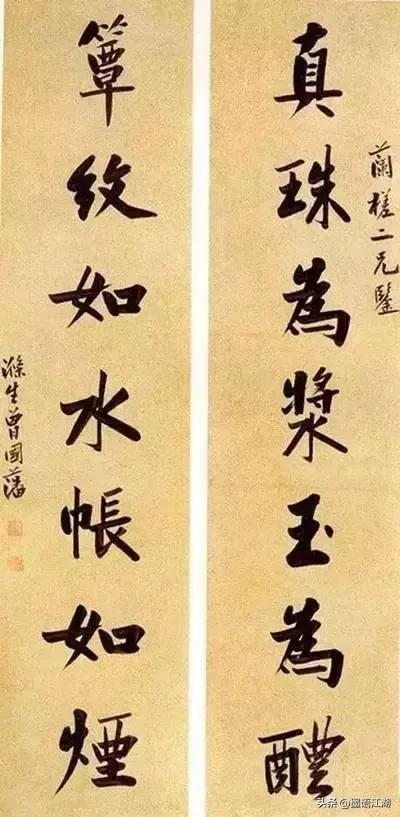 蘭槎二兄鑒
真珠為漿玉為醴
簟紋如水帳如煙
滌生曾國藩
头条@墨语江湖